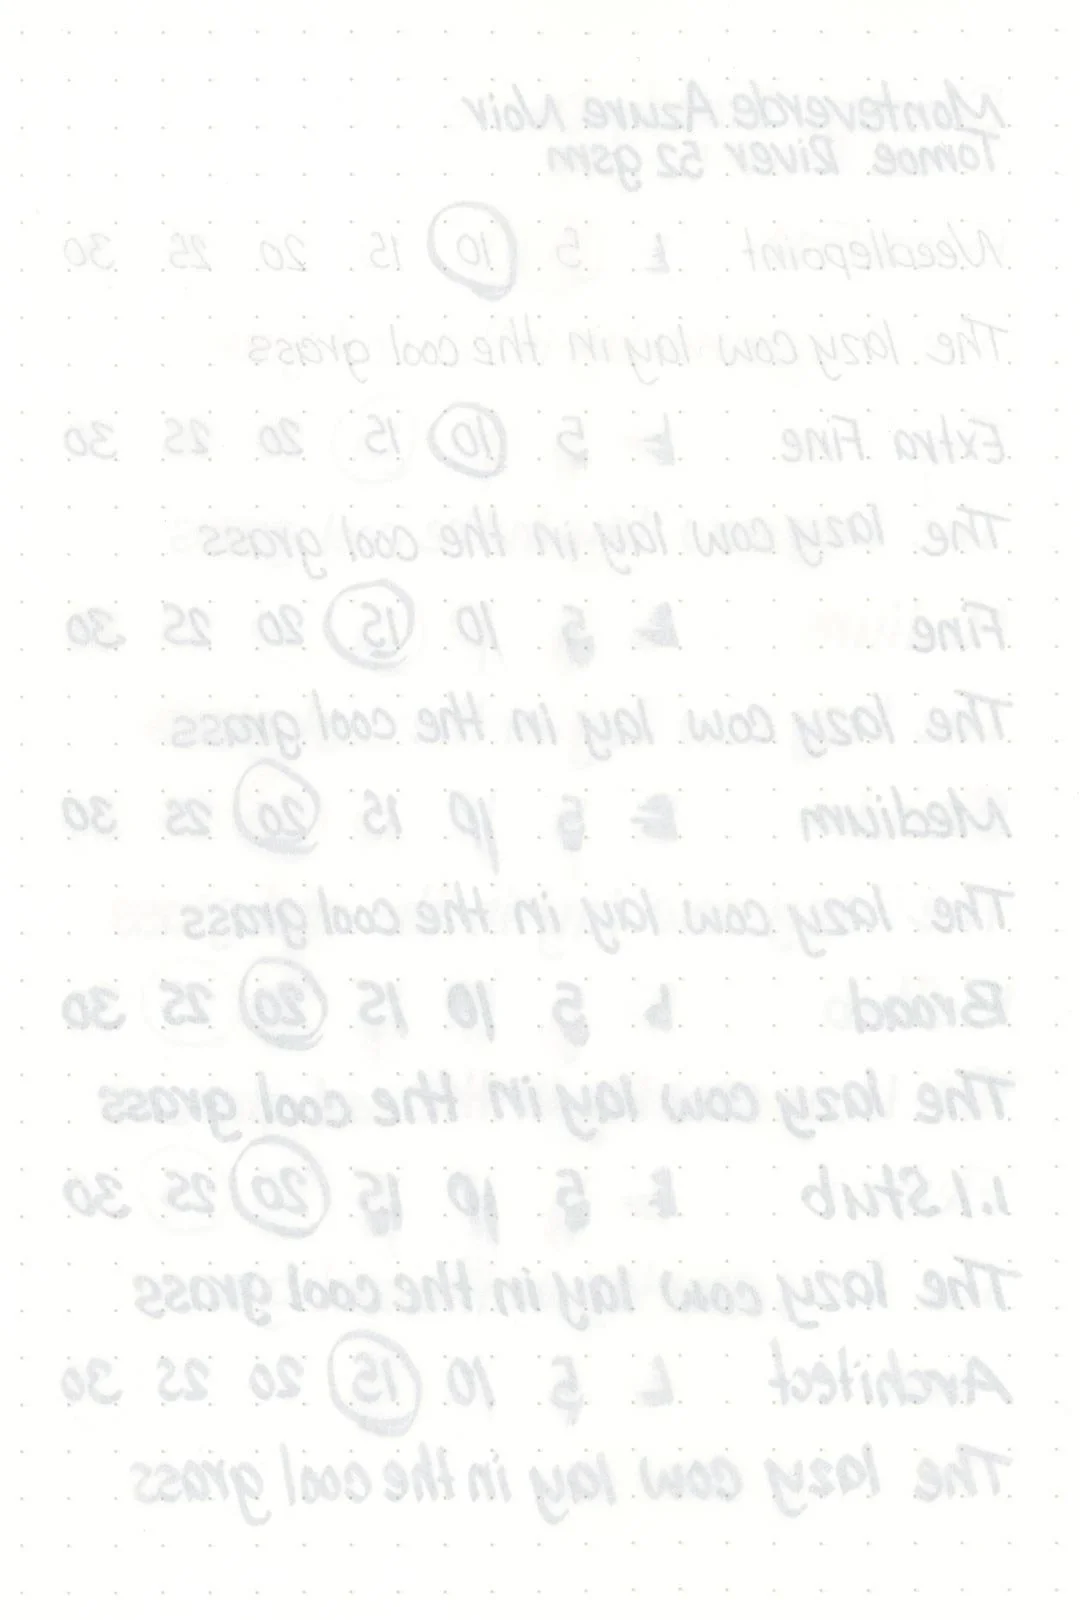 Monteverde Azure Noir
Tomoe River 52 gsm
Needlepoint 5 10 15 20 25 30
The lazy cow lay in the cool grass
Extra Fine 5 10 15 20 25 30
The lazy cow lay in the cool grass
Fine 5 10 15 20 25 30
The lazy cow lay in the cool grass
Medium 5 10 15 20 25 30
The lazy cow lay in the cool grass
Broad 5 10 15 20 25 30
The lazy cow lay in the cool grass
1.1 Stub 5 10 15 20 25 30
The lazy cow lay in the cool grass
Architect 5 10 15 20 25 30
The lazy cow lay in the cool grass